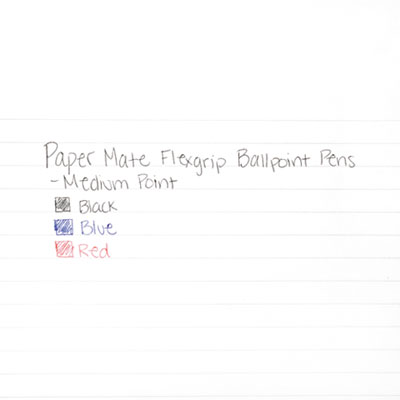 Paper Mate Flexgrip Ballpoint Pens
- Medium Point
Black
Blue
Red